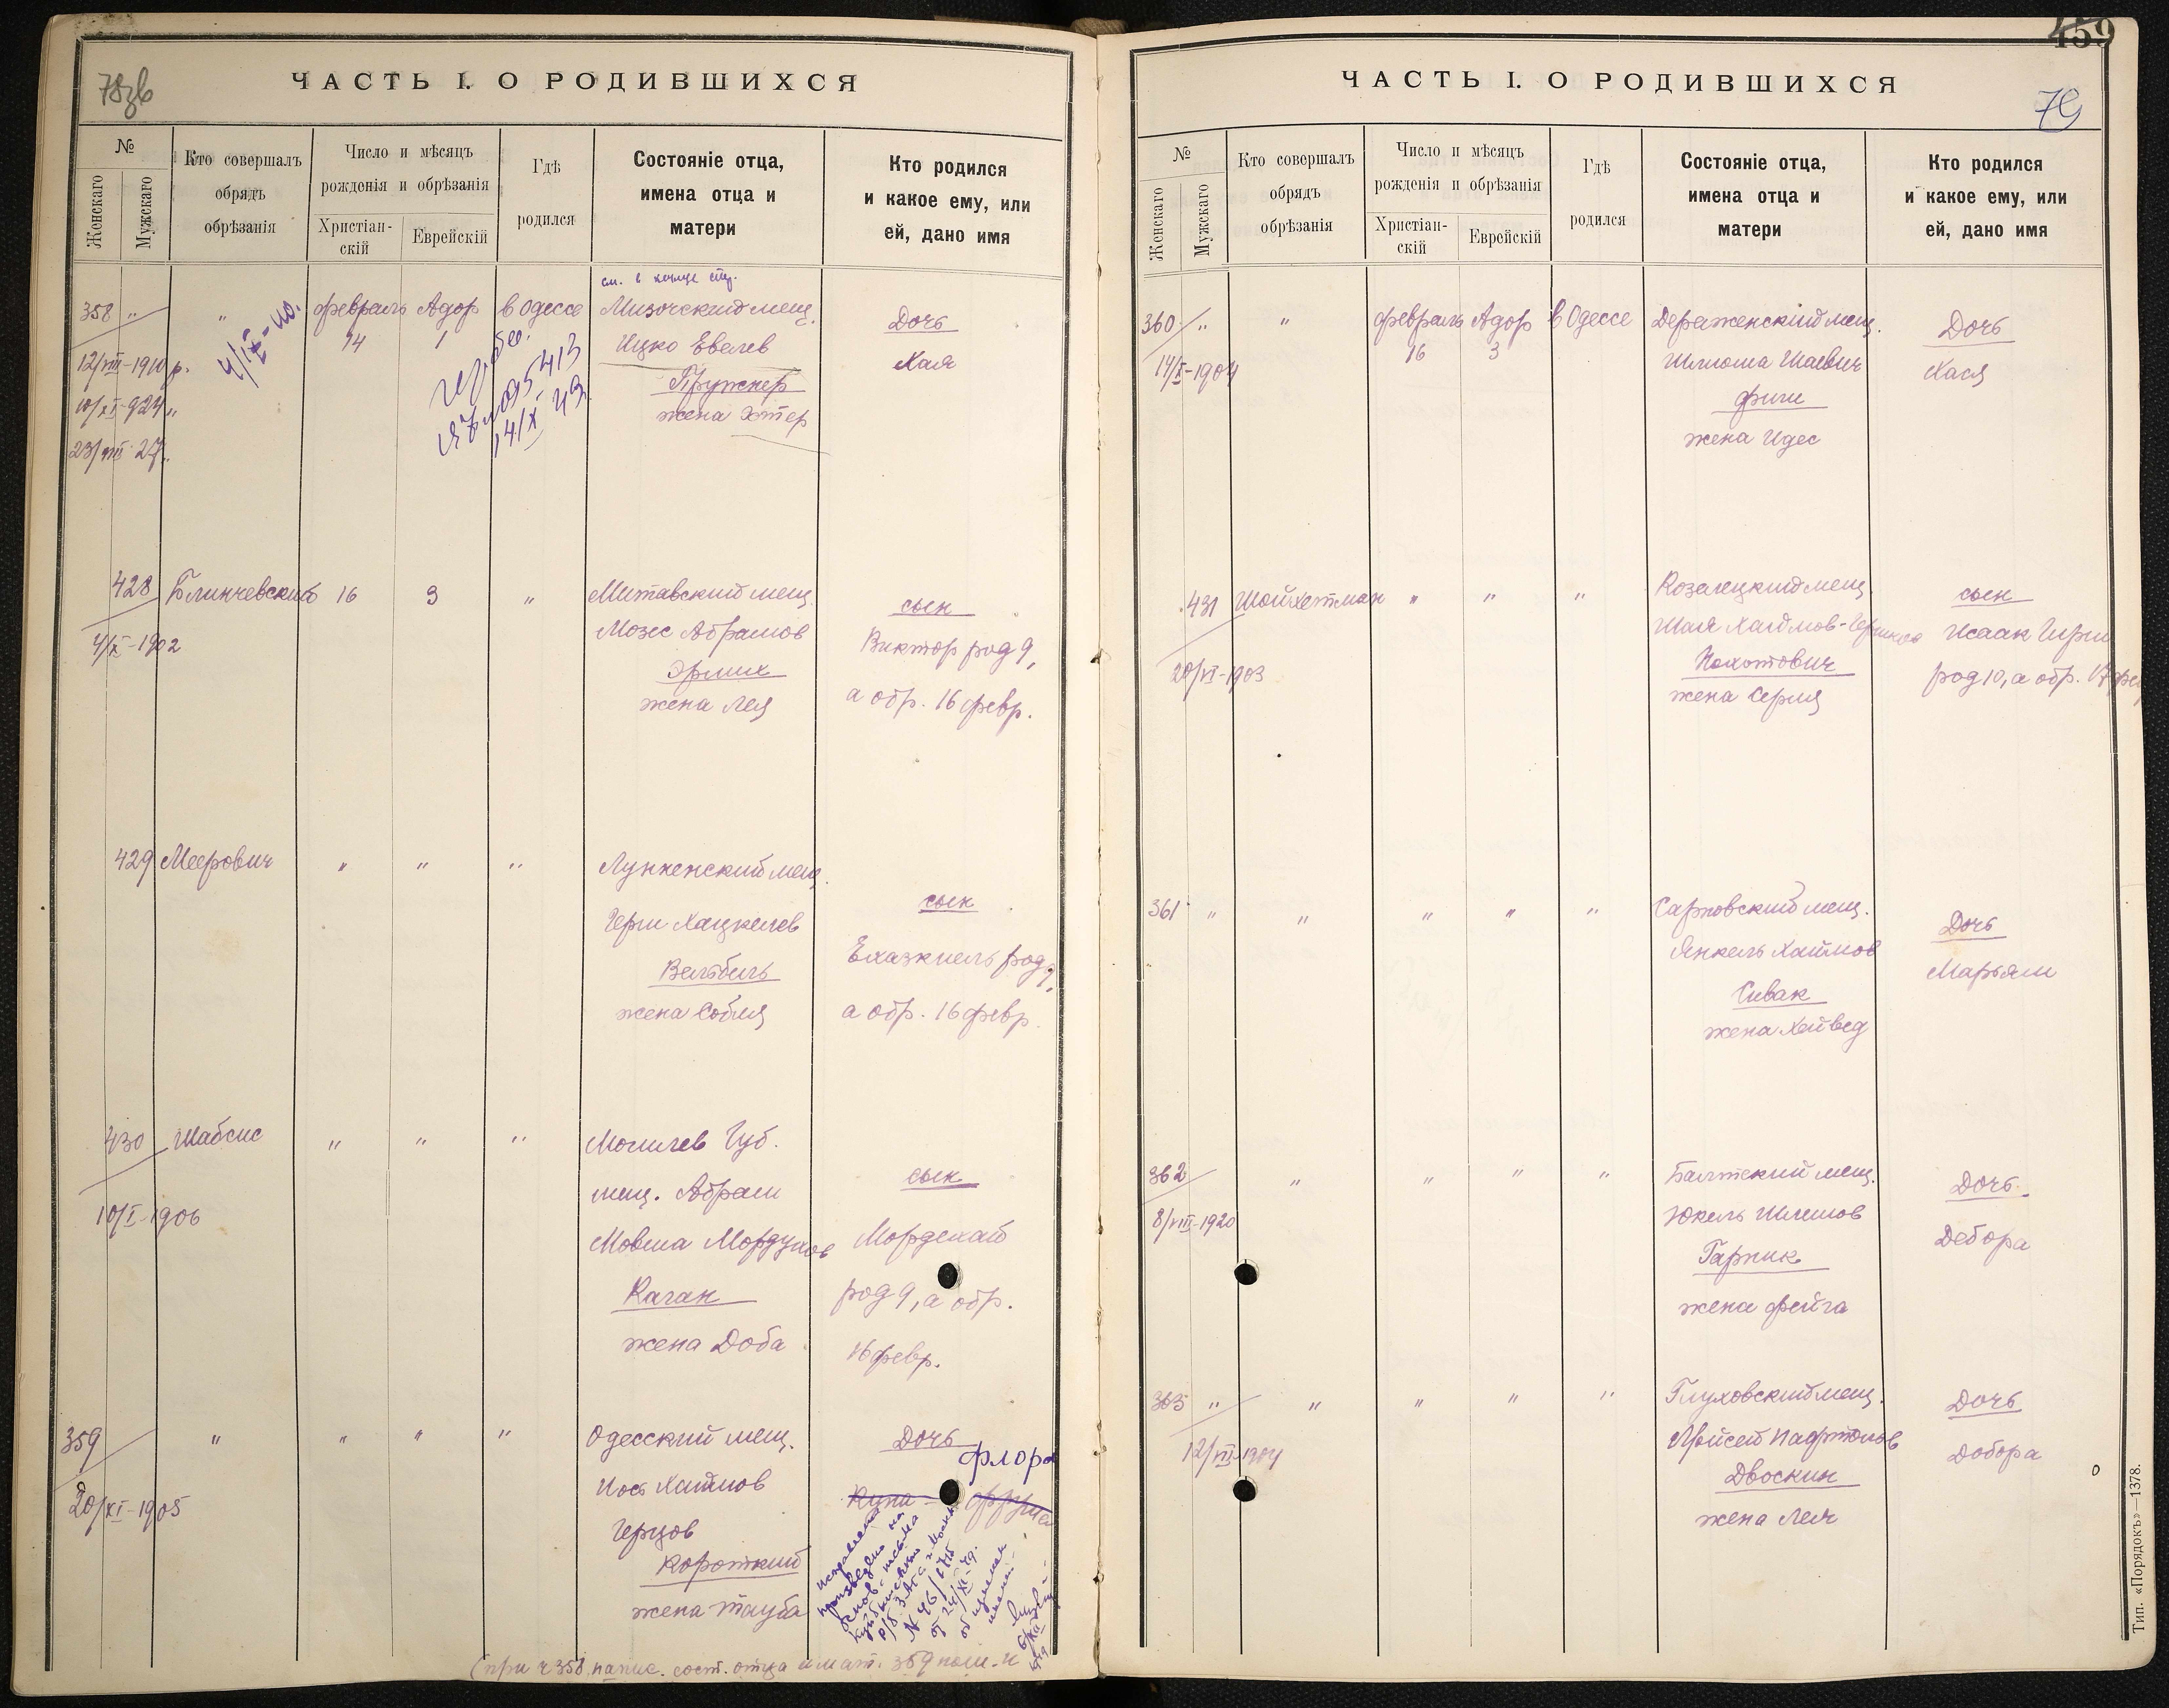 78зв
ЧАСТЬ I. О РОДИВШИХСЯ
№
Женскаго
Мужскаго
Кто совершалъ
обрядъ
обрѣзанія
Число и мѣсяцъ
рожденія и обрѣзанія
Христіан-
скій
Еврейскій
Гдѣ
родился
Состояніе отца,
имена отца и
матери
Кто родился
и какое ему, или
ей, дано имя
см. в конце стр.
358 " " февраль Адор в Одессе Мизочский мещ. Дочь
14 1 Ицко Евелев Хая
12/VIII-1910 р. Пружнер
10/XI-924 " жена Этер
23/VIII 27 "
14/X 43
428 Блинчевский 16 3 " Митавский мещ. сын
4/X-1902 Мозес Абрамов Виктор род 9,
Эрлих а обр. 16 февр.
жена Лея
429 Меерович " " " мещ.
Герш Хацкелев сын
Вельбель Ехазкиель род 9,
жена Собля а обр. 16 февр.
430 Шабсис " " " Могилев Губ.
мещ. Абрам сын
10/I-1906 Мовша Мордухов Мордехай
Каган род 9, а обр.
жена Доба 16 февр.
359 " " " " Одесский мещ. Дочь
Флора
20/XI-1905 Иось Хаймов
Герцов
Короткий
жена Тауба
исправлена
произведено на
основ. письма
N 46/
от 24/XI-49.
(при ч 358 напис. сост. отца и мат. 359 пом. и
459
79
ЧАСТЬ I. О РОДИВШИХСЯ
№
Женскаго
Мужскаго
Кто совершалъ
обрядъ
обрѣзанія
Число и мѣсяцъ
рожденія и обрѣзанія
Христіан-
скій
Еврейскій
Гдѣ
родился
Состояніе отца,
имена отца и
матери
Кто родился
и какое ему, или
ей, дано имя
360 " " февраль Адор в Одессе Дераженский мещ. Дочь
16 3 Шлиома Шаевич Хася
14/X-1904 Фиш
жена Идес
431 Шойхетман " " " Козелецкий мещ. сын
Шая Хаимов-Гершков Исаак Герш
20/VI-1903 род 10, а обр. 17 фев
жена Серля
361 " " " " " мещ. Дочь
Янкель Хаимов Марьям
Сивак
жена Хейвед
362 " " " " Балтский мещ. Дочь
8/VIII-1920 Юкель Шлемов Дебора
Гарник
жена Фейга
363 " " " " " Глуховский мещ. Дочь
12/VII-1904 Мойсей Нафтолов Добора
Двоскин
жена Лея
Тип. «Порядокъ»—1378.